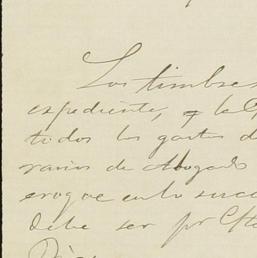 Los timbres
expediente, y la
todos los gastos d
rarios de Abogado
erogue en lo suce
debe ser por Cta